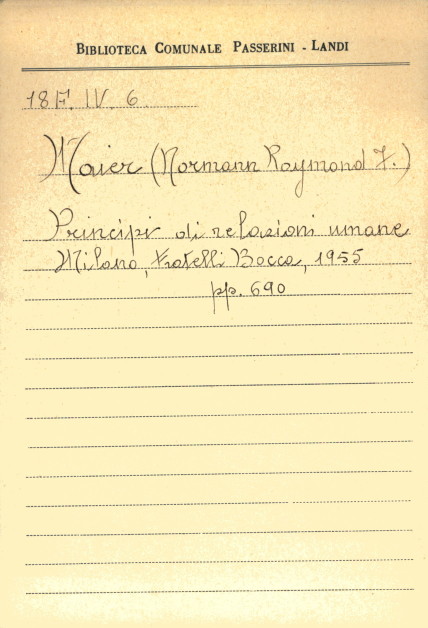 BIBLIOTECA COMUNALE PASSERINI - LANDI
18 F. IV. 6.
Maier (Normann Raymond F.)
Principi di relazioni umane
Milano, Fratelli Bocca, 1955
pp. 690